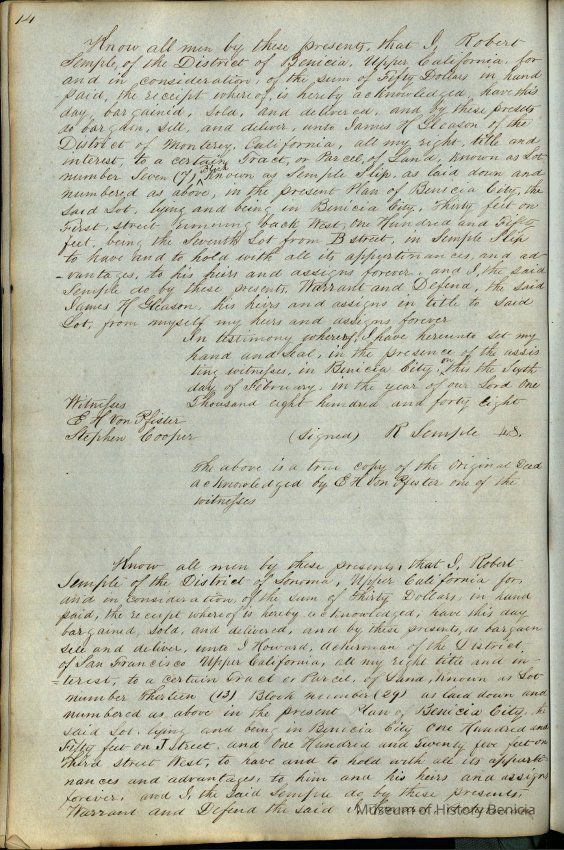 14
Know all men by these presents, that I, Robert
Semple, of the District of Benicia, Upper California, for
and in consideration, of the sum of Fifty Dollars in hand
paid, the receipt whereof, is hereby acknowledged, have this
day, bargained, sold, and delivered, and by these presents
do bargain, sell, and deliver, unto James H Gleason of the
District of Monterey, California, all my right, title and
interest, to a certain Tract, or Parcel, of Land, known as Lot
number Seven (7) Block known as Semple Slip, as laid down and
numbered as above, in the present Plan of Benicia City, the
said Lot, lying and being in Benicia City, Thirty feet on
First, street running back West, One Hundred and Fifty
feet, being the Seventh Lot from B street, in Semple Slip
to have and to hold with all its appurtinances, and ad
-vantages, to his heirs and assigns forever, and I, the said
Semple do by these presents, Warrant and Defend, the said
James H Gleason, his heirs and assigns in title to said
Lot, from myself my heirs and assigns forever
In testimony whereof, I have hereunto set my
hand and Seal, in the presence of the assis
ting witnesses, in Benicia City, on this the
day of February, in the year of our Lord One
Witnesses Thousand eight hundred and forty Eight
E H Von Pfister
Stephen Cooper (Signed) R Semple
The above is a true copy of the Original Deed
acknowledged by E H Von Pfister one of the
witnesses
Know all men by these presents, that I, Robert
Semple of the District of Sonoma, Upper California for,
and in consideration, of the sum of Thirty Dollars, in hand
paid, the receipt whereof is hereby acknowledged, have this day
bargained, sold, and delivered, and by these presents, do bargain
sell and deliver, unto I Howard, Ackerman of the District,
of San Francisco Upper California, all my right title and in-
=terest, to a certain Tract or Parcel, of Land, known as Lot
number thirteen (13) Block number (29) as laid down and
numbered as above in the present Plan of Benicia City, the
said Lot, lying and being in Benicia City One Hundred and
Fifty feet on J Street, and One Hundred and twenty five feet on
Third street West, to have and to hold with all its appurti-
nances and advantages, to him and his heirs and assigns
forever, and I, the said Semple do by these presents,
Warrant and Defend the said
Museum of History Benicia